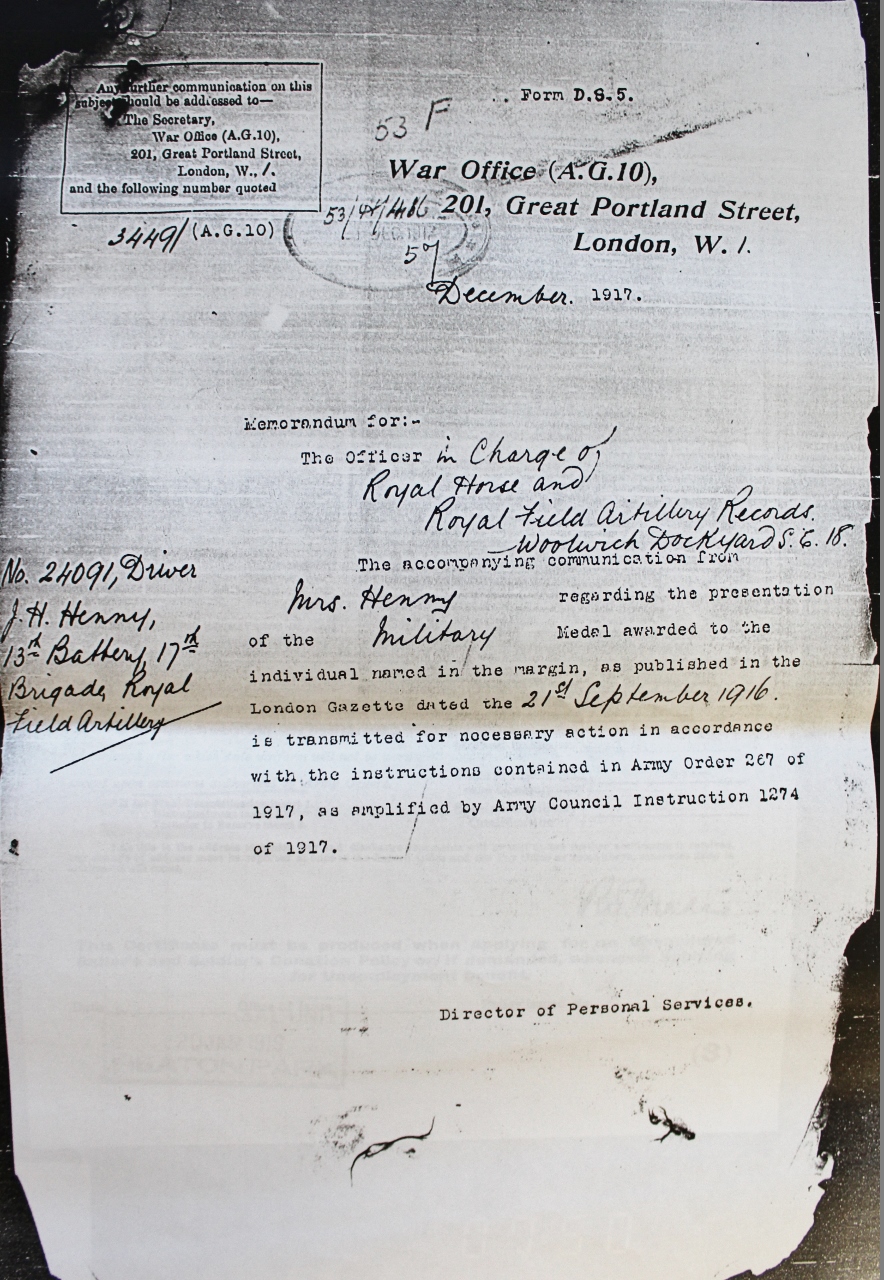 Any further communication on this
subject should be addressed to—
The Secretary,
War Office (A.G.10),
201, Great Portland Street,
London, W., 1.
and the following number quoted
3449/ (A.G.10)
Form D.S.5.
53 F
War Office (A.G.10),
201, Great Portland Street,
London, W. 1.
December. 1917.
Memorandum for:-
The Officer in Charge of
Royal Horse and
Royal Field Artillery Records.
Woolwich Dockyard S.E. 18.
No. 24091, Driver
J.H. Henny,
13th Battery, 17th
Brigade, Royal
Field Artillery
The accompanying communication from
Mrs. Henny regarding the presentation
of the Military Medal awarded to the
individual named in the margin, as published in the
London Gazette dated the 21st September 1916.
is transmitted for necessary action in accordance
with the instructions contained in Army Order 267 of
1917, as amplified by Army Council Instruction 1274
of 1917.
Director of Personal Services.